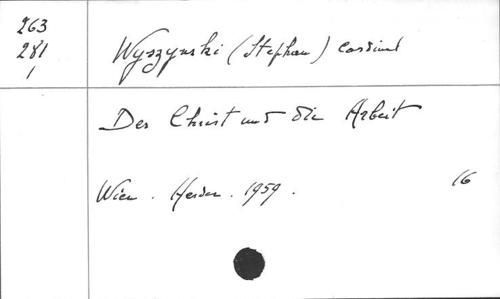 263
281
1
Wyszynski (Stephan) Cardinal
Der Christ und die Arbeit
Wien . Herder . 1959 .
16